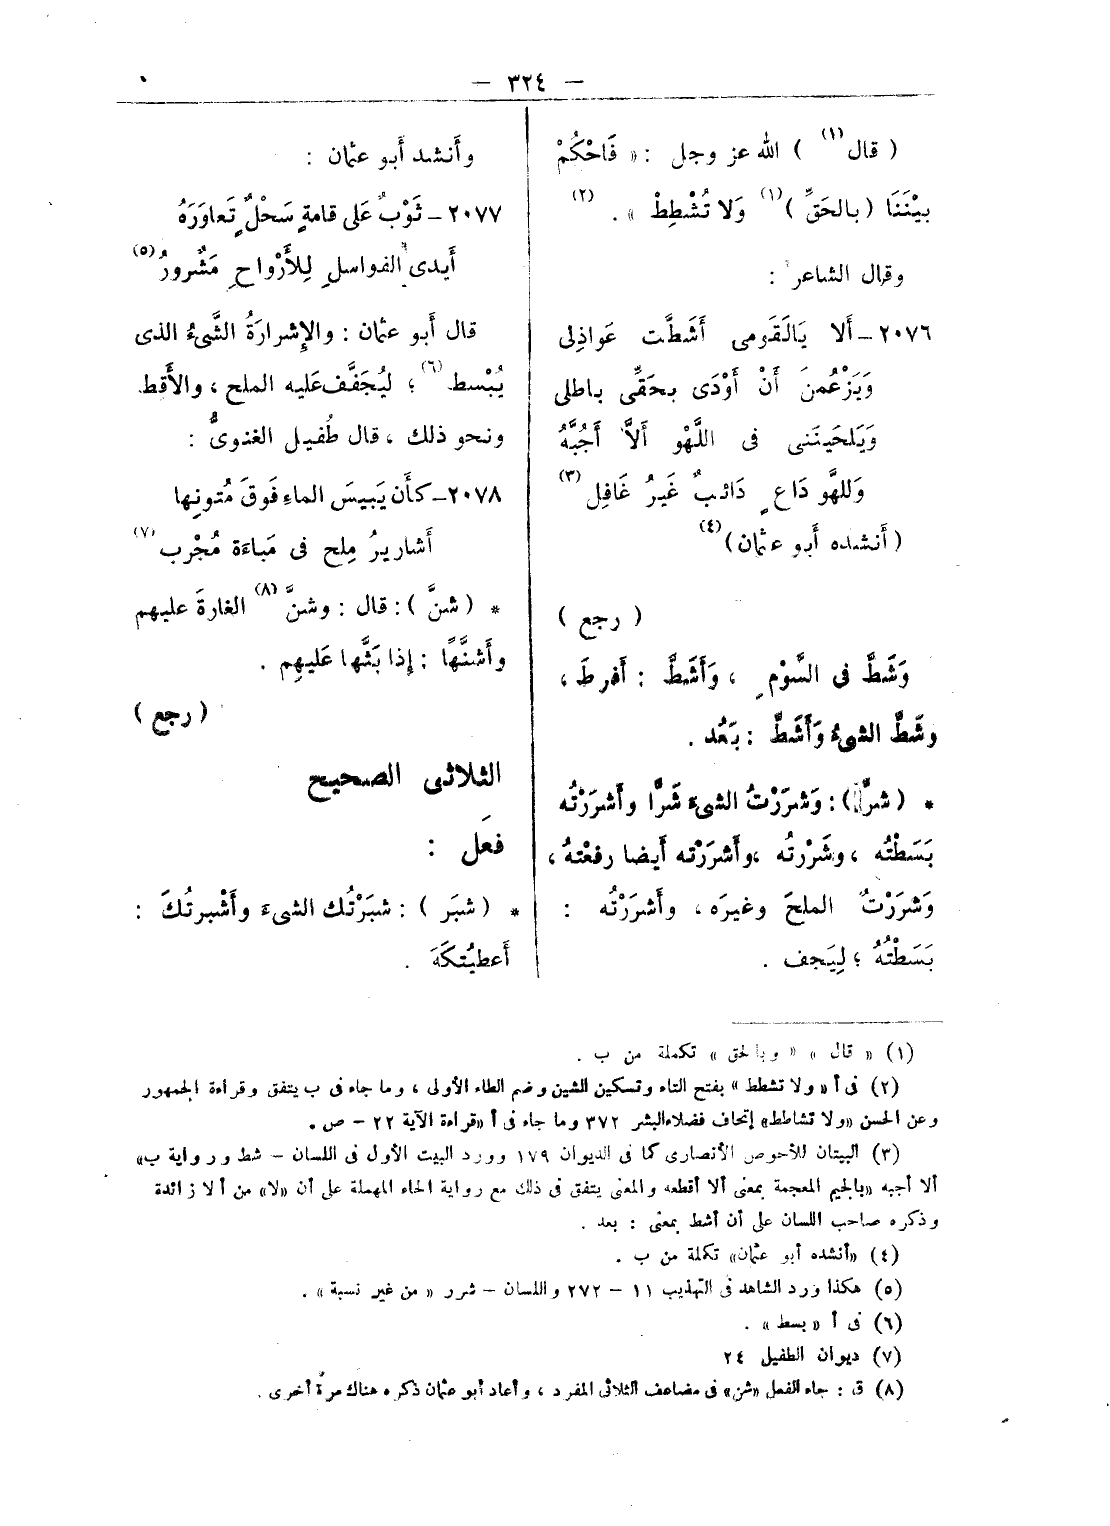 — ٣٢٤ —
( قال (١) ) الله عز وجل : « فَاحْكُمْ
بيْنَنَا ( بالحَقِّ )(١) وَلا تُشْطِطْ » . (٢)
وقال الشاعر :
٢٠٧٦ – ألا يَالَقَومى أَشَطَّت عَواذِلى
وَيَزْعُمنَ أَنْ أَوْدَى بحَقِّى باطلى
وَيَلحَينَنى فى اللَّهْو أَلاَّ أُجُبَّهُ
وَللهَّو دَاعٍ دَائبٌ غَيرُ غَافِل (٣)
( أَنشده أَبو عثمان ) (٤)
( رجع )
وَشَطَّ فى السَّوْمِ ، وَأَشَطَّ : أَفرطَ ،
وشَطَّ الشىءُ وَأَشَطَّ : بَعُد .
* ( شرَّ ) : وَشرَرْتُ الشىءَ شَرًّا وأَشرَرْتُه
بَسَطْتُه ، وشَرْرتُه ، وأَشرَرْته أَيضا رفعْتهُ ،
وَشرَرْتُ الملحَ وغيرَه ، وأَشرَرْتُه :
بَسَطْتُهُ ؛ لِيَجف .
وأَنشد أَبو عثمان :
٢٠٧٧ – ثَوْبٌ عَلى قامةٍ سَحْلٌ تَعاوَرَهُ
أَيدى الفواسلِ لِلأَرْواحِ مَشْرورُ (٥)
قال أَبو عثمان : والإِشرارَةُ الشَّىءُ الذى
يُبْسط (٦) ؛ ليُجَفَّف عَليه الملح ، والأَقط
ونحو ذلك ، قال طُفيل الغنوىُّ :
٢٠٧٨ – كأَن يَبيسَ الماءِ فَوقَ مُتونِها
أَشاريرُ مِلح فى مَباءَة مُجْرب (٧)
* ( شنَّ ) : قال : وشنَّ (٨) الغارةَ عليهم
وأَشنَّهًا : إِذا بَثَّها عَليهِم .
( رجع )
الثلاثى الصحيح
فعَل :
* ( شبَر ) : شبَرْتُك الشىءَ وأَشْبرتُكَ :
أَعطيْتكَهَ .
(١) « قال » « وبالحق » تكملة من ب .
(٢) فى أ « ولا تشطط » بفتح التاء وتسكين الشين وضم الطاء الأولى ، وما جاء فى ب يتفق وقراءة الجمهور
وعن الحسن «ولا تشاطط» إتحاف فضلاء البشر ٣٧٢ وما جاء فى أ «قراءة الآية ٢٢ – ص .
(٣) البيتان للأحوص الأنصارى كما فى الديوان ١٧٩ وورد البيت الأول فى اللسان – شط ورواية ب»
ألا أجبه «بالجيم المعجمة بمعنى ألا أقطعه والمعنى يتفق فى ذلك مع رواية الحاء المهملة على أن «لا» من ألا زائدة
وذكره صاحب اللسان على أن أشط بمعنى : بعد .
(٤) «أنشده أبو عثمان» تكملة من ب .
(٥) هكذا ورد الشاهد فى التهذيب ١١ – ٢٧٢ واللسان – شرر « من غير نسبة » .
(٦) فى أ « بسط » .
(٧) ديوان الطفيل ٢٤
(٨) ق : جاء الفعل «شن» فى مضاعف الثلاثى المفرد ، وأعاد أبو عثمان ذكره هناك مرة أخرى .